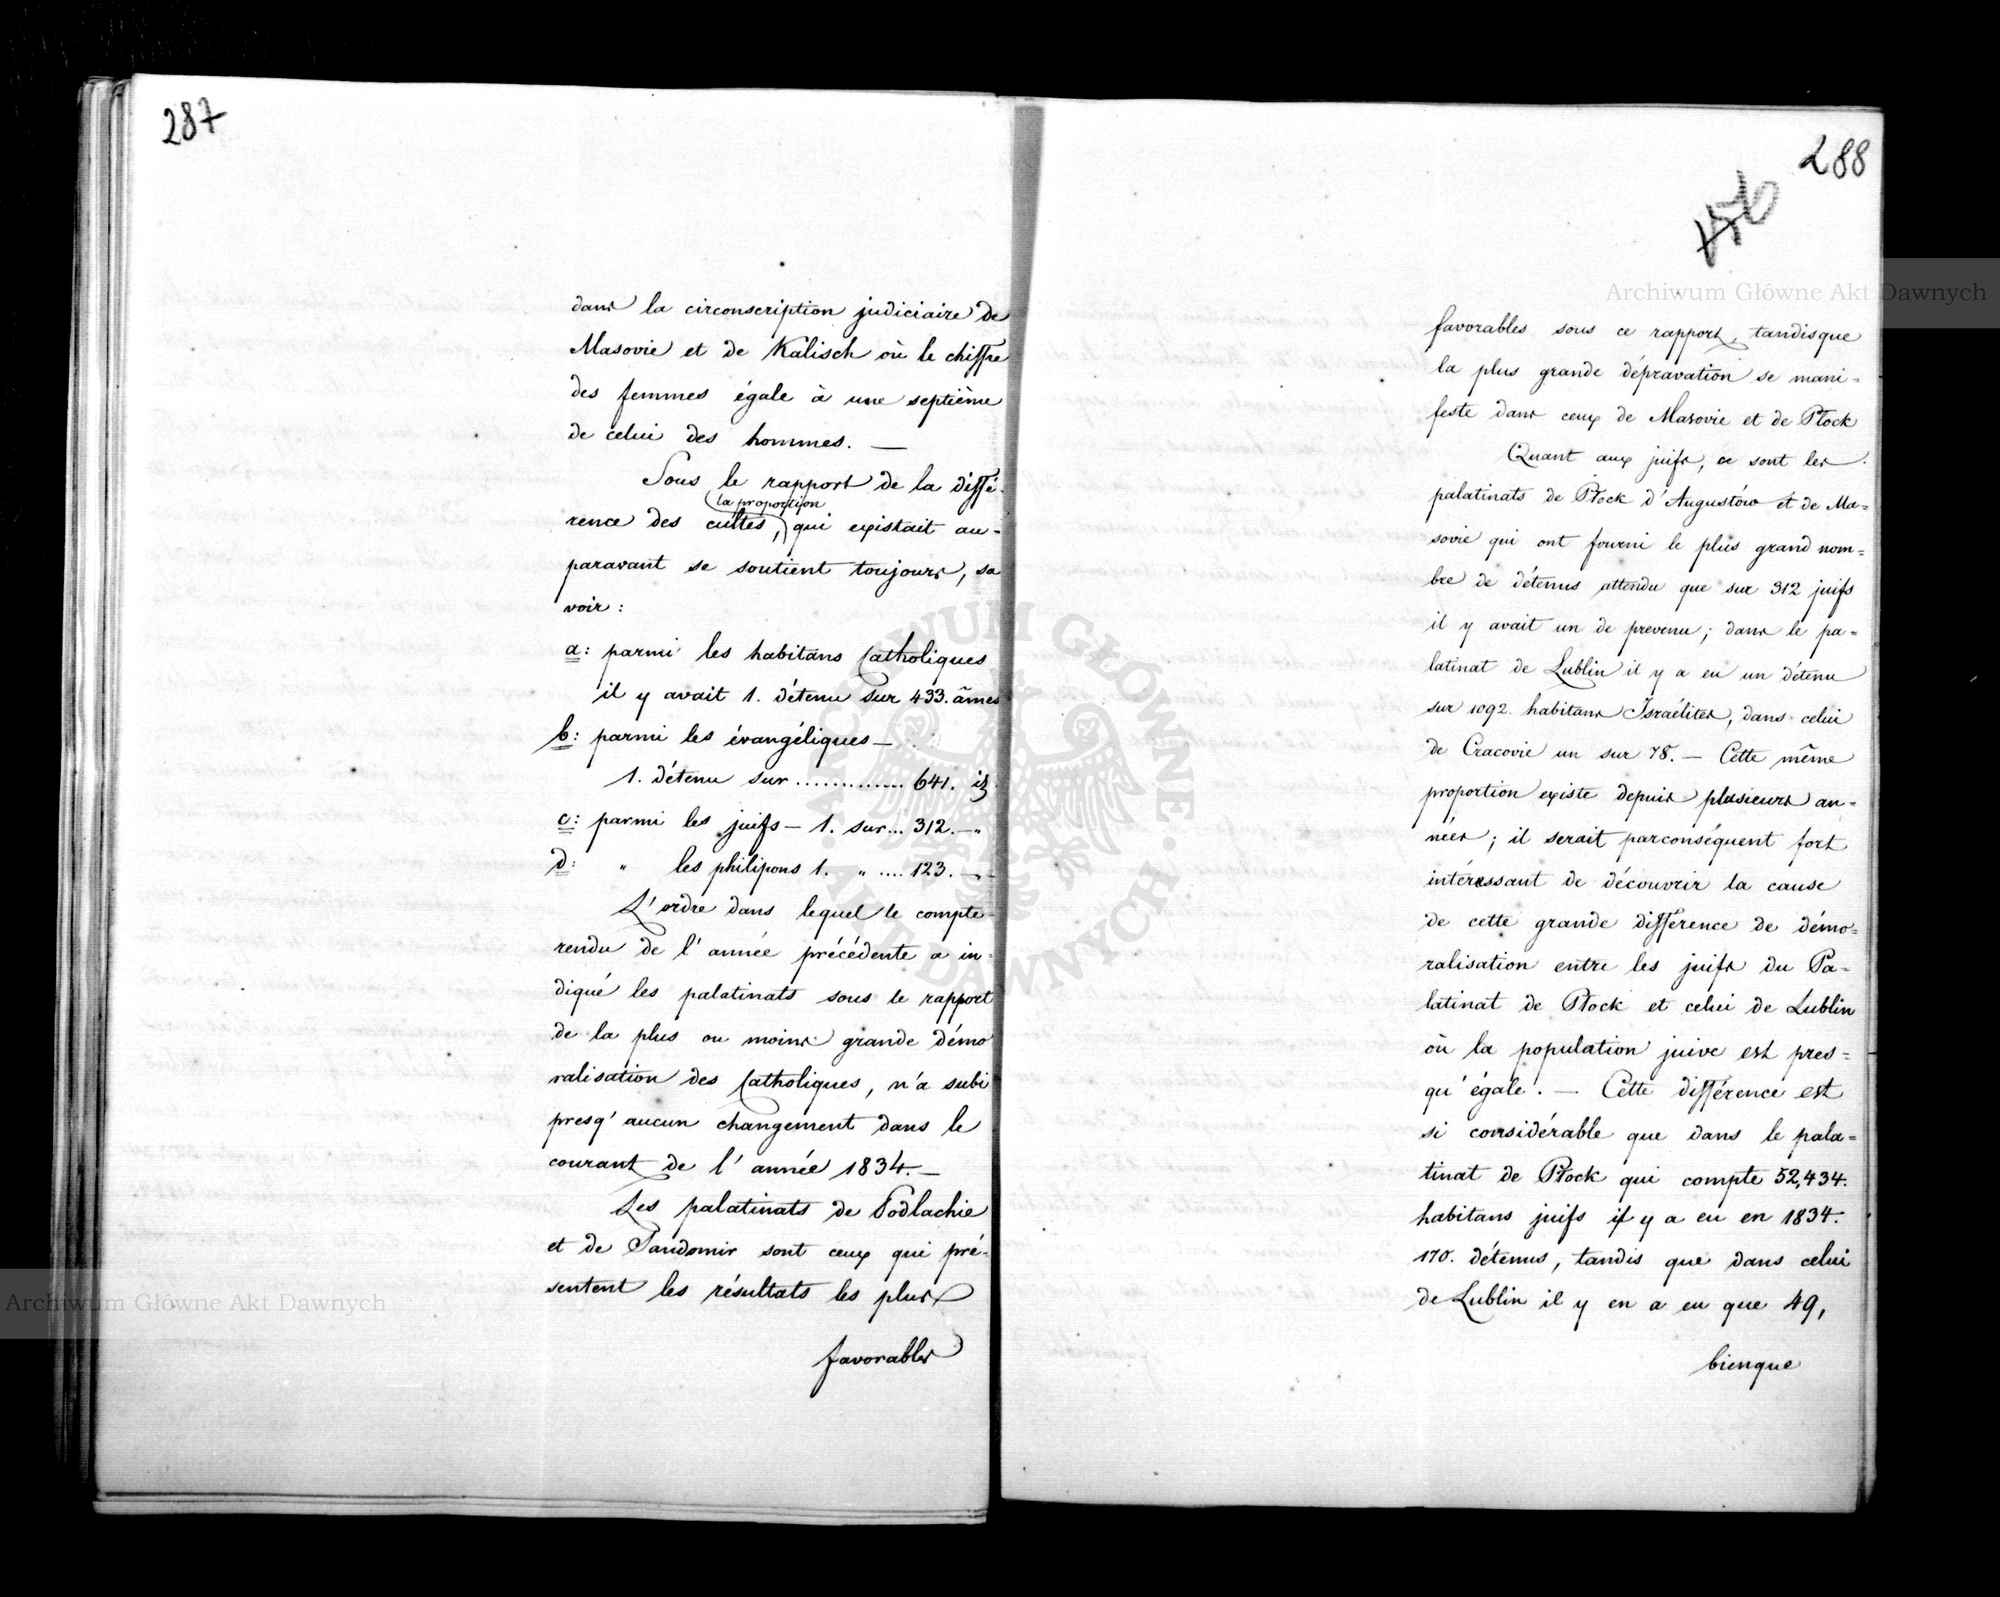 287
dans la circonscription judiciaire de
Masovie et de Kalisch où le chiffre
des femmes égale à une septième
de celui des hommes. —
Sous le rapport de la diffé-
la proportion
rence des cultes, qui existait au-
paravant se soutient toujours, sa
voir :
a: parmi les habitans Catholiques
il y avait 1. détenu sur 433. âmes
b: parmi les évangéliques —
1. détenu sur ............. 641. id
c: parmi les juifs — 1. sur... 312. — "
d: " les philipons 1. " .... 123. — "
L'ordre dans lequel le compte-
rendu de l'année précédente a in-
diqué les palatinats sous le rapport
de la plus ou moins grande démo
ralisation des Catholiques, n'a subi
presq'aucun changement dans le
courant de l'année 1834. —
Les palatinats de Podlachie
et de Sandomir sont ceux qui pré-
sentent les résultats les plus
favorables
288
favorables sous ce rapport, tandisque
la plus grande dépravation se mani=
feste dans ceux de Masovie et de Płock
Quant aux juifs, ce sont les
palatinats de Płock d'Augustów et de Ma=
sovie qui ont fourni le plus grand nom=
bre de détenus attendu que sur 312 juifs
il y avait un de prevenu; dans le pa=
latinat de Lublin il y a eu un détenu
sur 1092. habitans Israélites, dans celui
de Cracovie un sur 78. — Cette même
proportion existe depuis plusieurs an=
nées; il serait parconséquent fort
intéressant de découvrir la cause
de cette grande différence de démo=
ralisation entre les juifs du Pa=
latinat de Płock et celui de Lublin
où la population juive est pres=
qu'égale. — Cette différence est
si considérable que dans le pala=
tinat de Płock qui compte 52,434.
habitans juifs il y a eu en 1834.
170. détenus, tandis que dans celui
de Lublin il y en a eu que 49,
bienque
Archiwum Główne Akt Dawnych
Archiwum Główne Akt Dawnych
ARCHIWUM GŁÓWNE AKT DAWNYCH